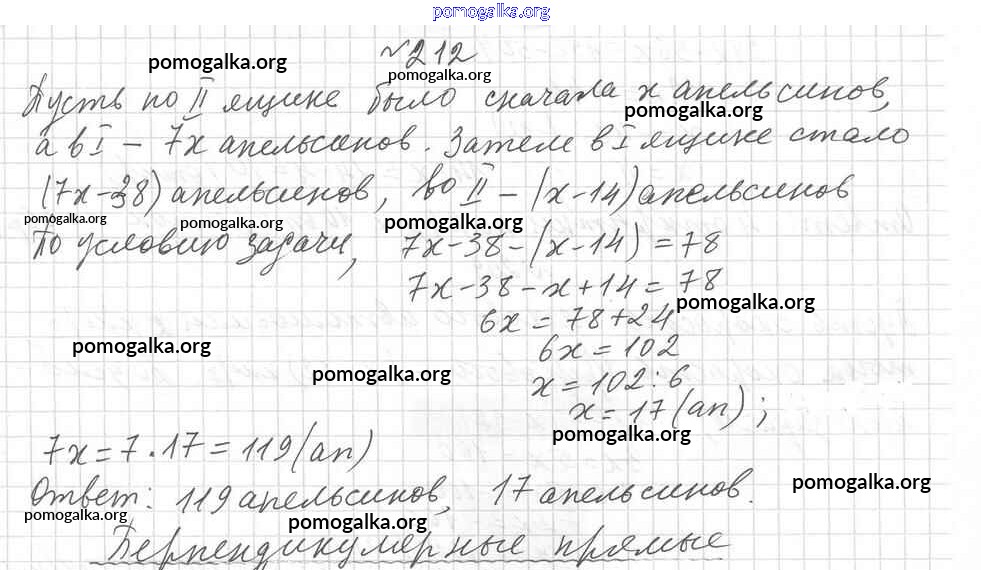 pomogalka.org
№ 212
pomogalka.org
pomogalka.org
Пусть во II ящике было сначала x апельсинов,
pomogalka.org
а в I – 7x апельсинов. Затем в I ящике стало
(7x-38) апельсинов, во II – (x-14) апельсинов
pomogalka.org pomogalka.org pomogalka.org
По условию задачи, 7x-38-(x-14)=78
7x-38-x+14=78
pomogalka.org
6x=78+24
pomogalka.org
6x=102
pomogalka.org
x=102:6
x=17(ап);
pomogalka.org
7x=7·17=119(ап)
pomogalka.org
Ответ: 119 апельсинов, 17 апельсинов.
pomogalka.org pomogalka.org
Перпендикулярные прямые